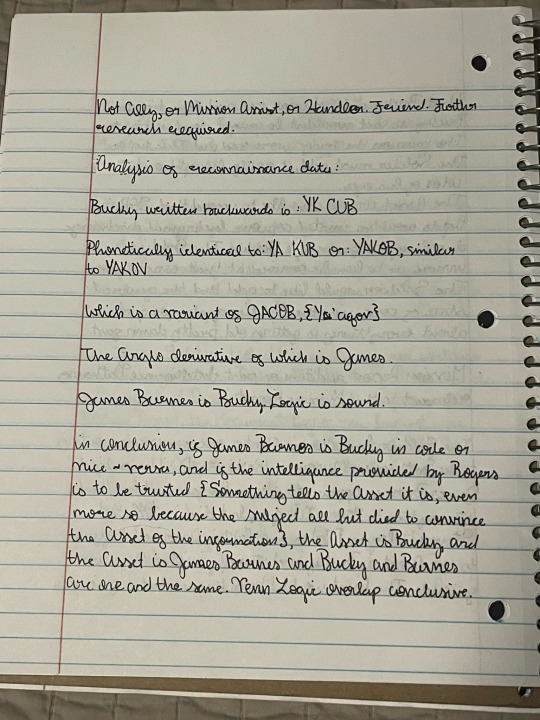 Not Ally, or Mission Assist, or Handler. Friend. Further
research required.
Analysis of reconnaissance data:
Bucky written backwards is: YK CUB
Phonetically identical to: YA KUB or: YAKOB, similar
to YAKOV
Which is a variant of JACOB, {Ya'aqov}
The Anglo derivative of which is James.
James Barnes is Bucky. Logic is sound.
in conclusion, if James Barnes is Bucky in code or
vice-versa, and if the intelligence provided by Rogers
is to be trusted {Something tells the Asset it is, even
more so because the subject all but died to convince
the Asset of the information}, the Asset is Bucky, and
the Asset is James Barnes and Bucky and Barnes
are one and the same. Venn Logic overlap conclusive.